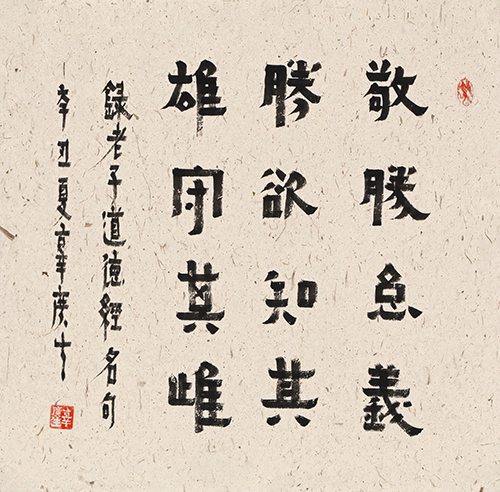 敬勝怠義
勝欲知其
雄守其雌
録老子道德經名句
辛丑夏